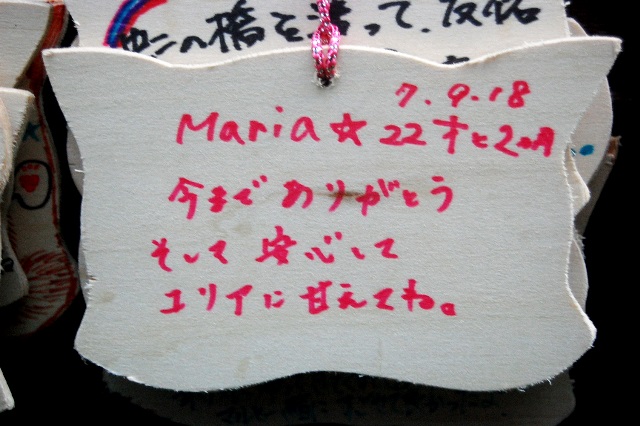 虹の橋を渡って、友佑
7.9.18
Maria☆22才と2ヶ月
今までありがとう
そして安心して
ユリイに甘えてね。